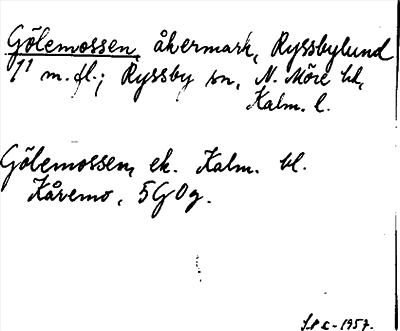 Gölemossen, åkermark, Ryssbylund
1¹ m.fl.; Ryssby sn, N. Möre hd,
Kalm. l.
Gölemossen, ek. Kalm. bl.
Kåremo, 5G0g.
1957.